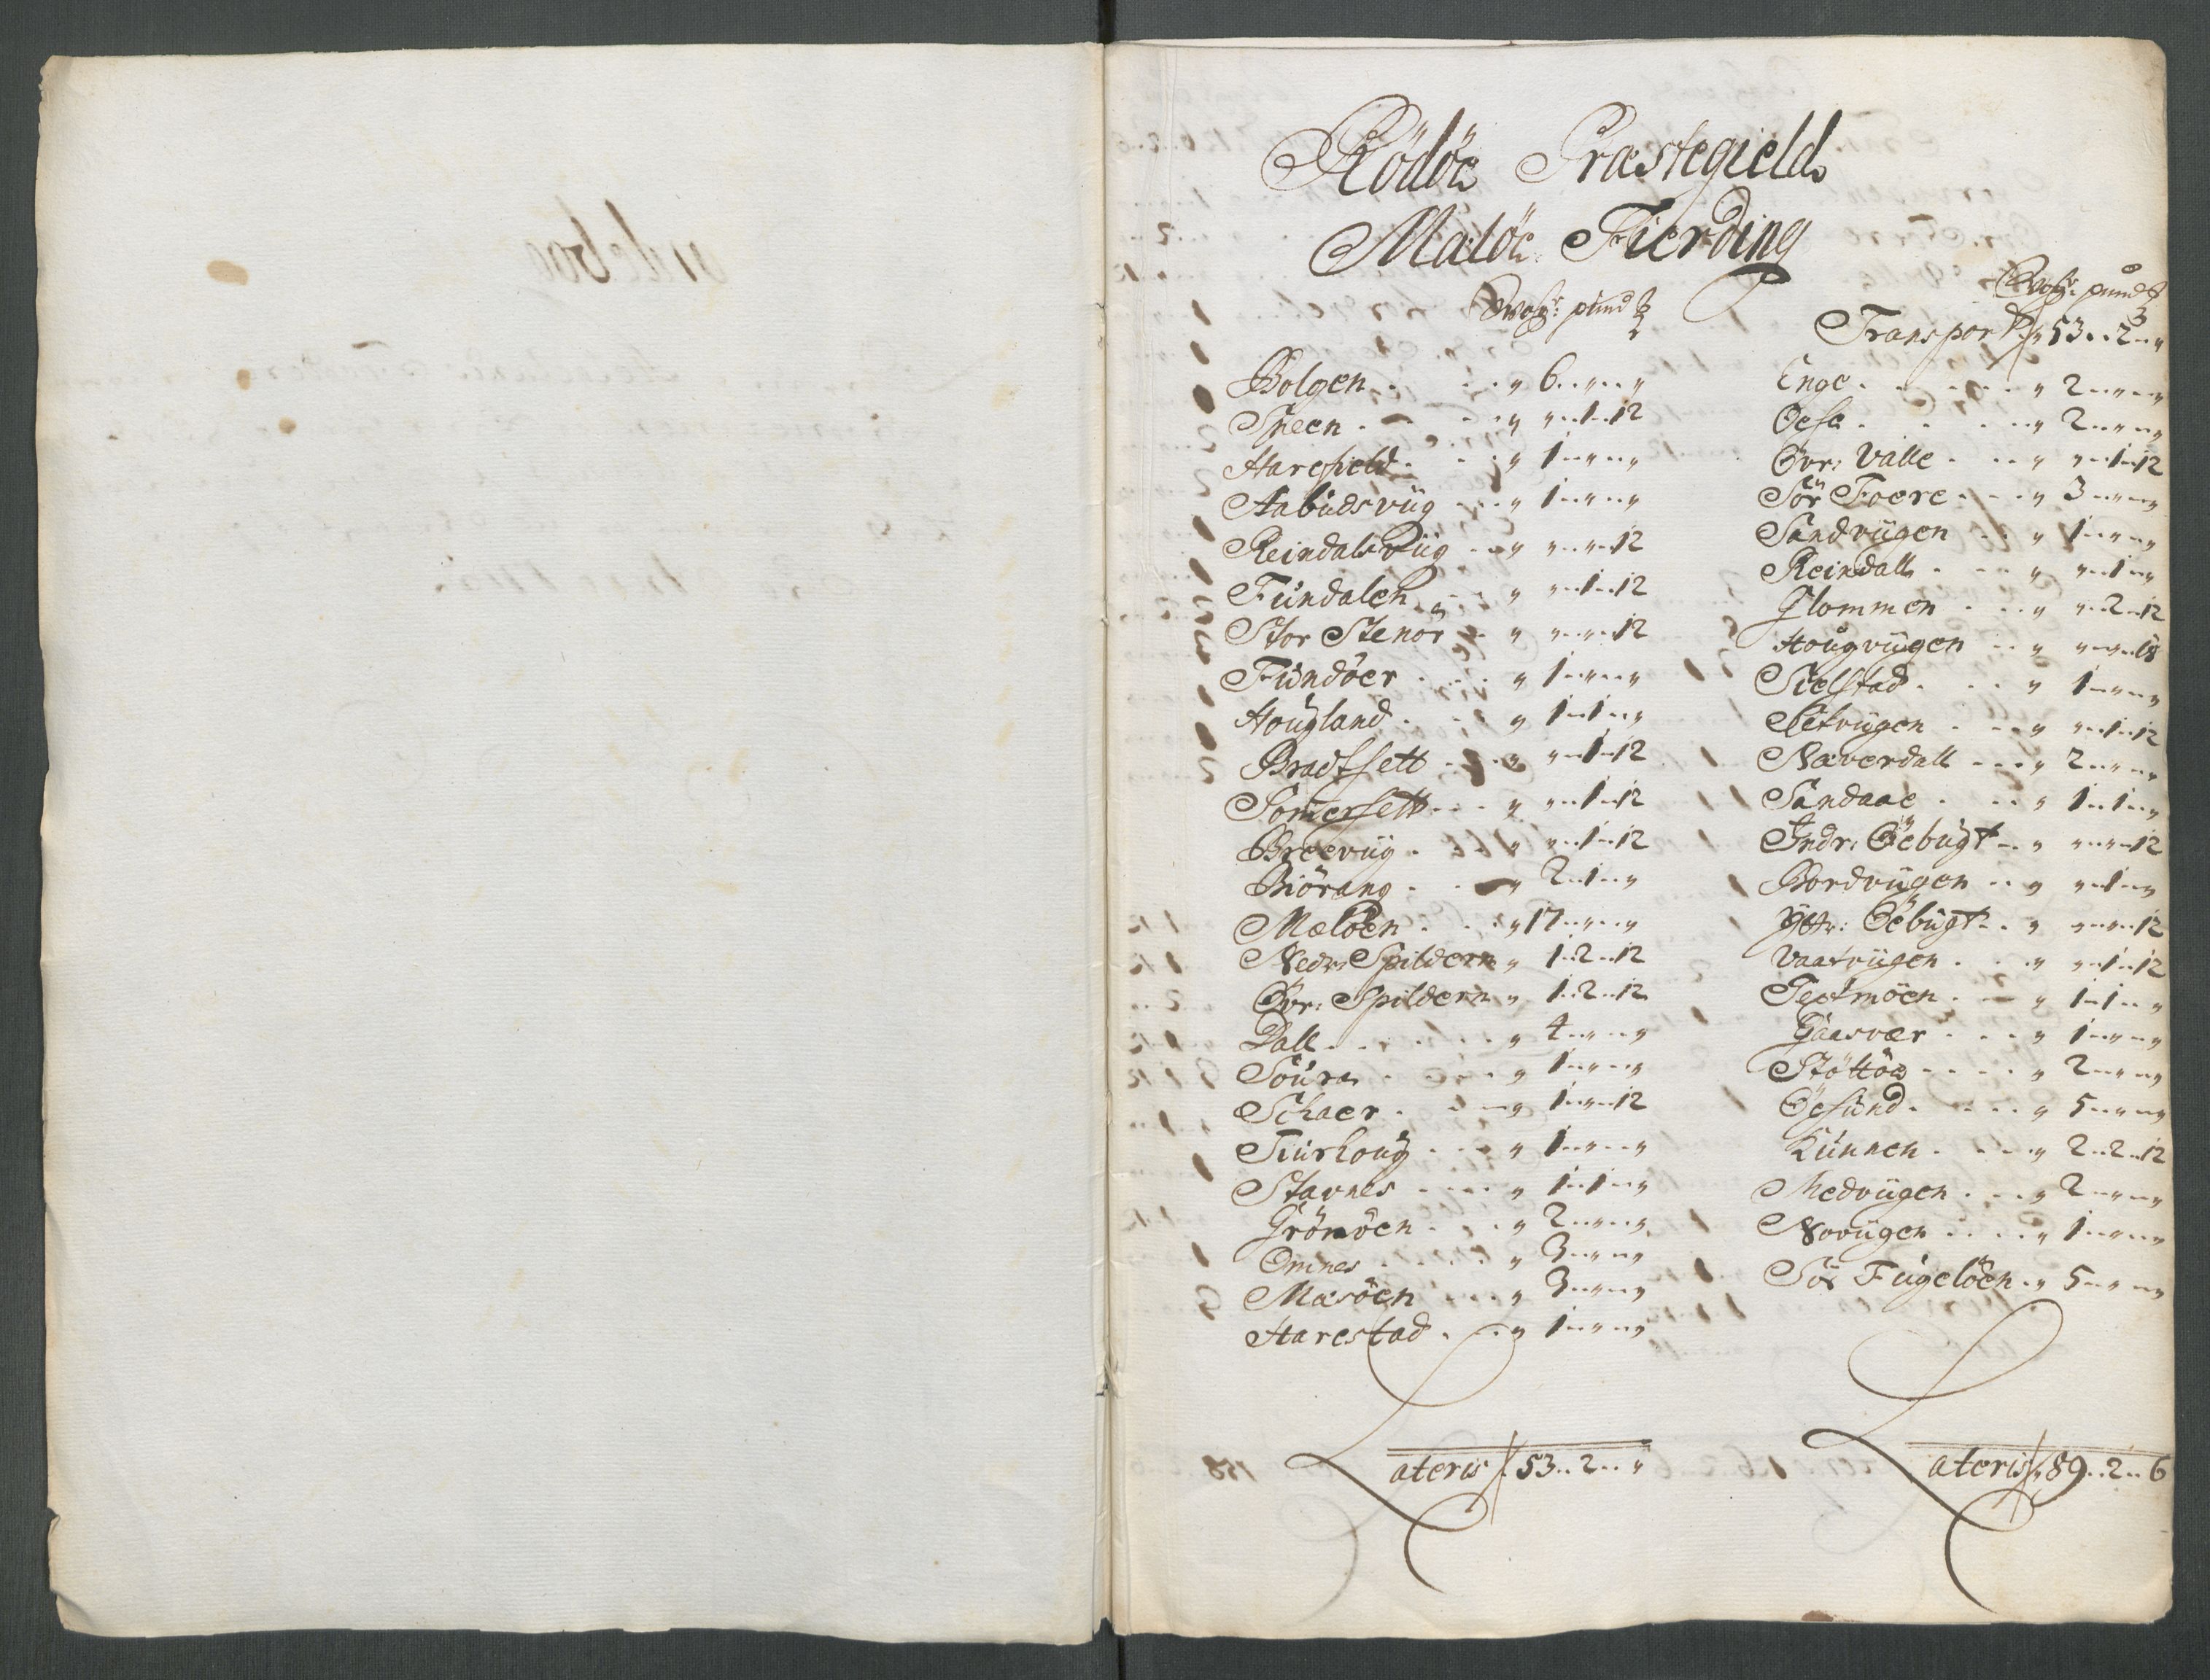 Rödöe Præstegield
Maløe Fierding
Woger pund ℔
Bolgen . . . „ 6 .. „ .. „
Theen . . . „ „ .. 1 .. 12
Harefield . . „ 1 .. „ .. „
Aabudsvüg . . „ 1 .. „ .. „
Reindalsvüg . . „ „ .. „ .. 12
Fundalen . . „ „ .. 1 .. 12
Stor Stenör . . „ „ .. „ .. 12
Fundöer . . . „ 1 .. „ .. „
Hougland . . „ 1 .. 1 .. „
Bradtsett . . . „ „ .. 1 .. 12
Somersett . . . „ „ .. 1 .. 12
Breevüg . . . „ „ .. 1 .. 12
Biörang . . . „ 2 .. 1 .. „
Mæløen . . . „ 17 .. „ .. „
Nedr: Spildern „ 1 .. 2 .. 12
Øvr: Spildern „ 1 .. 2 .. 12
Dall . . . . . „ 4 .. „ .. „
Soura . . . . „ 1 .. „ .. „
Schaer . . . „ 1 .. „ .. 12
Tiurhoug . . . „ 1 .. „ .. „
Stavnes . . . „ 1 .. 1 .. „
Grönöen . . „ 2 .. „ .. „
Omnes . . . . „ 3 .. „ .. „
Mæsöen . . . „ 3 .. „ .. „
Harestad . . . „ 1 .. „ .. „
Lateris „ 53 .. 2 .. „
Woger pund ℔
Transport „ 53 .. 2 .. „
Enge . . . . „ 2 .. „ .. „
Oesa . . . . „ 2 .. „ .. „
Øvr: Valle . . . „ „ .. 1 .. 12
Sör Foere . . . „ 3 .. „ .. „
Sandvügen . . „ 1 .. „ .. „
Reindall . . . „ „ .. 1 .. „
Glommen . . . „ „ .. 2 .. 12
Hougvügen . . „ „ .. „ .. 18
Sielstad . . . „ 1 .. „ .. „
Setvügen . . . „ „ .. 1 .. 12
Næverdall . . . „ 2 .. „ .. „
Sandaae . . . „ 1 .. 1 .. „
Indr: Öebugt . . „ „ .. „ .. 12
Bordvügen . . „ „ .. 1 .. „
Yttr: Öebugt . . „ „ .. „ .. 12
Vaatvügen . . . „ „ .. 1 .. 12
Teetmöen . . . „ 1 .. 1 .. „
Gaasvær . . . „ 1 .. „ .. „
Stöttöe . . . . „ 2 .. „ .. „
Öesund . . . . „ 5 .. „ .. „
Kunnen . . . „ 2 .. 2 .. 12
Medvügen . . . „ 2 .. „ .. „
Novügen . . . . „ 1 .. „ .. „
Sör Fugelöen . . „ 5 .. „ .. „
Lateris „ 89 .. 2 .. 6